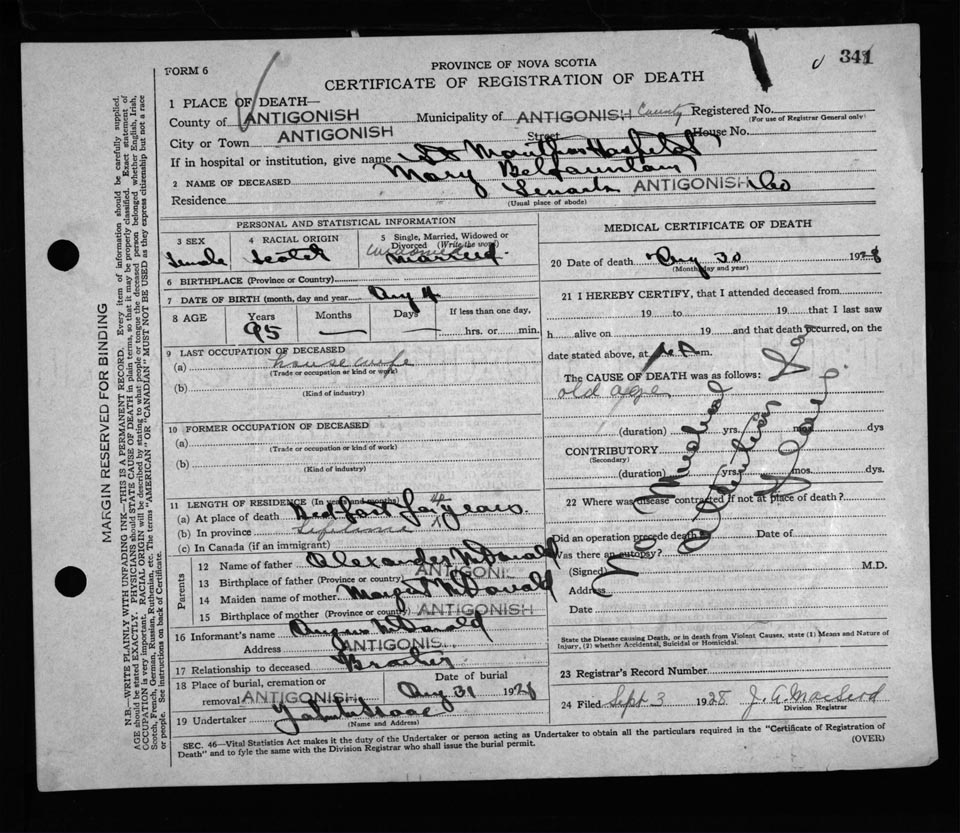 FORM 6
341
PROVINCE OF NOVA SCOTIA
CERTIFICATE OF REGISTRATION OF DEATH
1 PLACE OF DEATH—
County of ANTIGONISH Municipality of ANTIGONISH County Registered No.
(For use of Registrar General only)
City or Town ANTIGONISH Street House No.
If in hospital or institution, give name St Marthas Hospital
2 NAME OF DECEASED Mary
Residence ANTIGONISH Co
(Usual place of abode)
PERSONAL AND STATISTICAL INFORMATION
3 SEX Female
4 RACIAL ORIGIN Scotch
5 Single, Married, Widowed or Divorced (Write the word) Married
6 BIRTHPLACE (Province or Country)
7 DATE OF BIRTH (month, day and year) Aug 4
8 AGE Years 95 Months — Days — If less than one day, hrs. or min.
9 LAST OCCUPATION OF DECEASED
(a) house wife
(Trade or occupation or kind or work)
(b)
(Kind of industry)
10 FORMER OCCUPATION OF DECEASED
(a)
(Trade or occupation or kind of work)
(b)
(Kind of industry)
11 LENGTH OF RESIDENCE (In years and months)
(a) At place of death years
(b) In province lifetime
(c) In Canada (if an immigrant)
Parents
12 Name of father Alexander McDonald
13 Birthplace of father (Province or country) ANTIGONI
14 Maiden name of mother Margret McDonald
15 Birthplace of mother (Province or country) ANTIGONISH
16 Informant's name Angus McDonald
Address ANTIGONIS
17 Relationship to deceased Brother
18 Place of burial, cremation or removal ANTIGONISH Date of burial Aug 31 1928
19 Undertaker
(Name and Address)
MEDICAL CERTIFICATE OF DEATH
20 Date of death Aug 30 1928
(Month, day and year)
21 I HEREBY CERTIFY, that I attended deceased from
19 to 19 that I last saw
h alive on 19 and that death occurred, on the
date stated above, at m.
The CAUSE OF DEATH was as follows:
old age
(duration) yrs. mos dys
CONTRIBUTORY
(Secondary)
(duration) yrs. mos. dys.
22 Where was disease contracted if not at place of death?
Did an operation precede death Date of
Was there an autopsy?
(Signed) M.D.
Address
Date
No Medical
Attention for
Years.
State the Disease causing Death, or in death from Violent Causes, state (1) Means and Nature of
Injury, (2) whether Accidental, Suicidal or Homicidal.
23 Registrar's Record Number
24 Filed Sept 3 1928 J. A. MacLeod
Division Registrar
SEC. 46—Vital Statistics Act makes it the duty of the Undertaker or person acting as Undertaker to obtain all the particulars required in the "Certificate of Registration of
Death" and to fyle the same with the Division Registrar who shall issue the burial permit.
(OVER)
MARGIN RESERVED FOR BINDING
N.B.—WRITE PLAINLY WITH UNFADING INK—THIS IS A PERMANENT RECORD. Every item of information should be carefully supplied.
AGE should be stated EXACTLY. PHYSICIANS should STATE CAUSE OF DEATH in plain terms, so that it may be properly classified. Exact statement of
OCCUPATION is very important. RACIAL ORIGIN will be described by stating to what people or tongue the deceased person belonged whether English, Irish,
Scotch, French, German, Russian, Ruthenian, etc. The terms "AMERICAN" or "CANADIAN" MUST NOT BE USED as they express citizenship but not a race
or people. See instructions on back of Certificate.